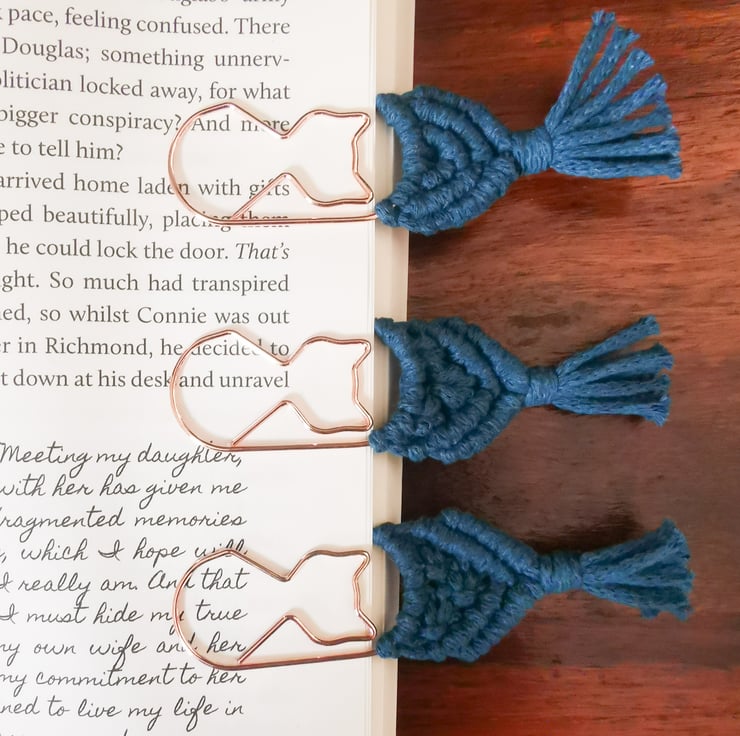 pace, feeling confused. There
Douglas; something unnerv-
olitician locked away, for what
bigger conspiracy? And more
e to tell him?
arrived home laden with gifts
ped beautifully, placing them
he could lock the door. That's
ght. So much had transpired
ed, so whilst Connie was out
r in Richmond, he decided to
t down at his desk and unravel
Meeting my daughter,
with her has given me
fragmented memories
, which I hope will
I really am. And that
I must hide my true
my own wife and her
my commitment to her
ned to live my life in